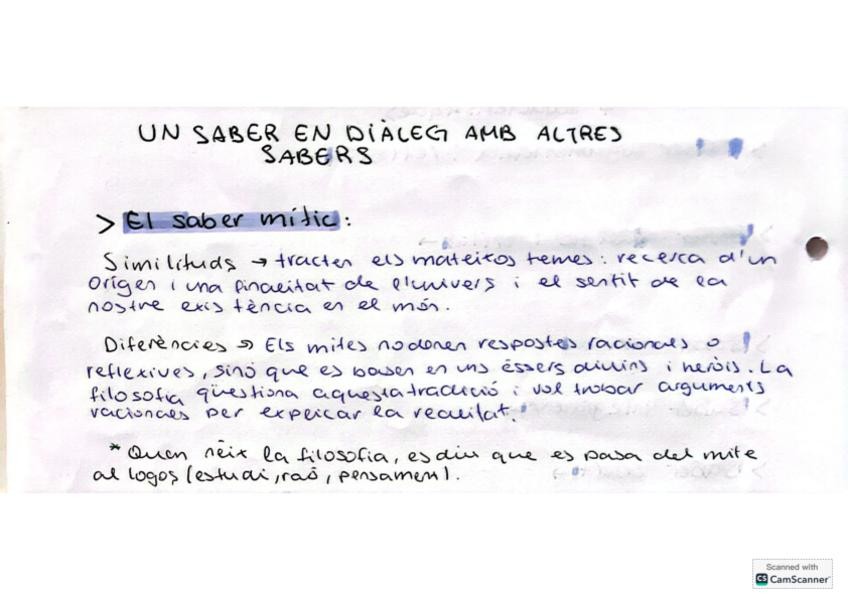 UN SABER EN DIÀLEG AMB ALTRES
SABERS
> El saber mític:
Similituds → tracten els mateixos temes: recerca d'un
origen i una finalitat de l'univers i el sentit de la
nostre existència en el món.
Diferències → Els mites no donen respostes racionals o
reflexives, sinó que es basen en uns éssers divins i herois. La
filosofia qüestiona aquesta tradició i vol trobar arguments
racionals per explicar la realitat.
* Quan neix la filosofia, es diu que es pasa del mite
al logos (estudi, raó, pensament).
Scanned with
CS CamScanner